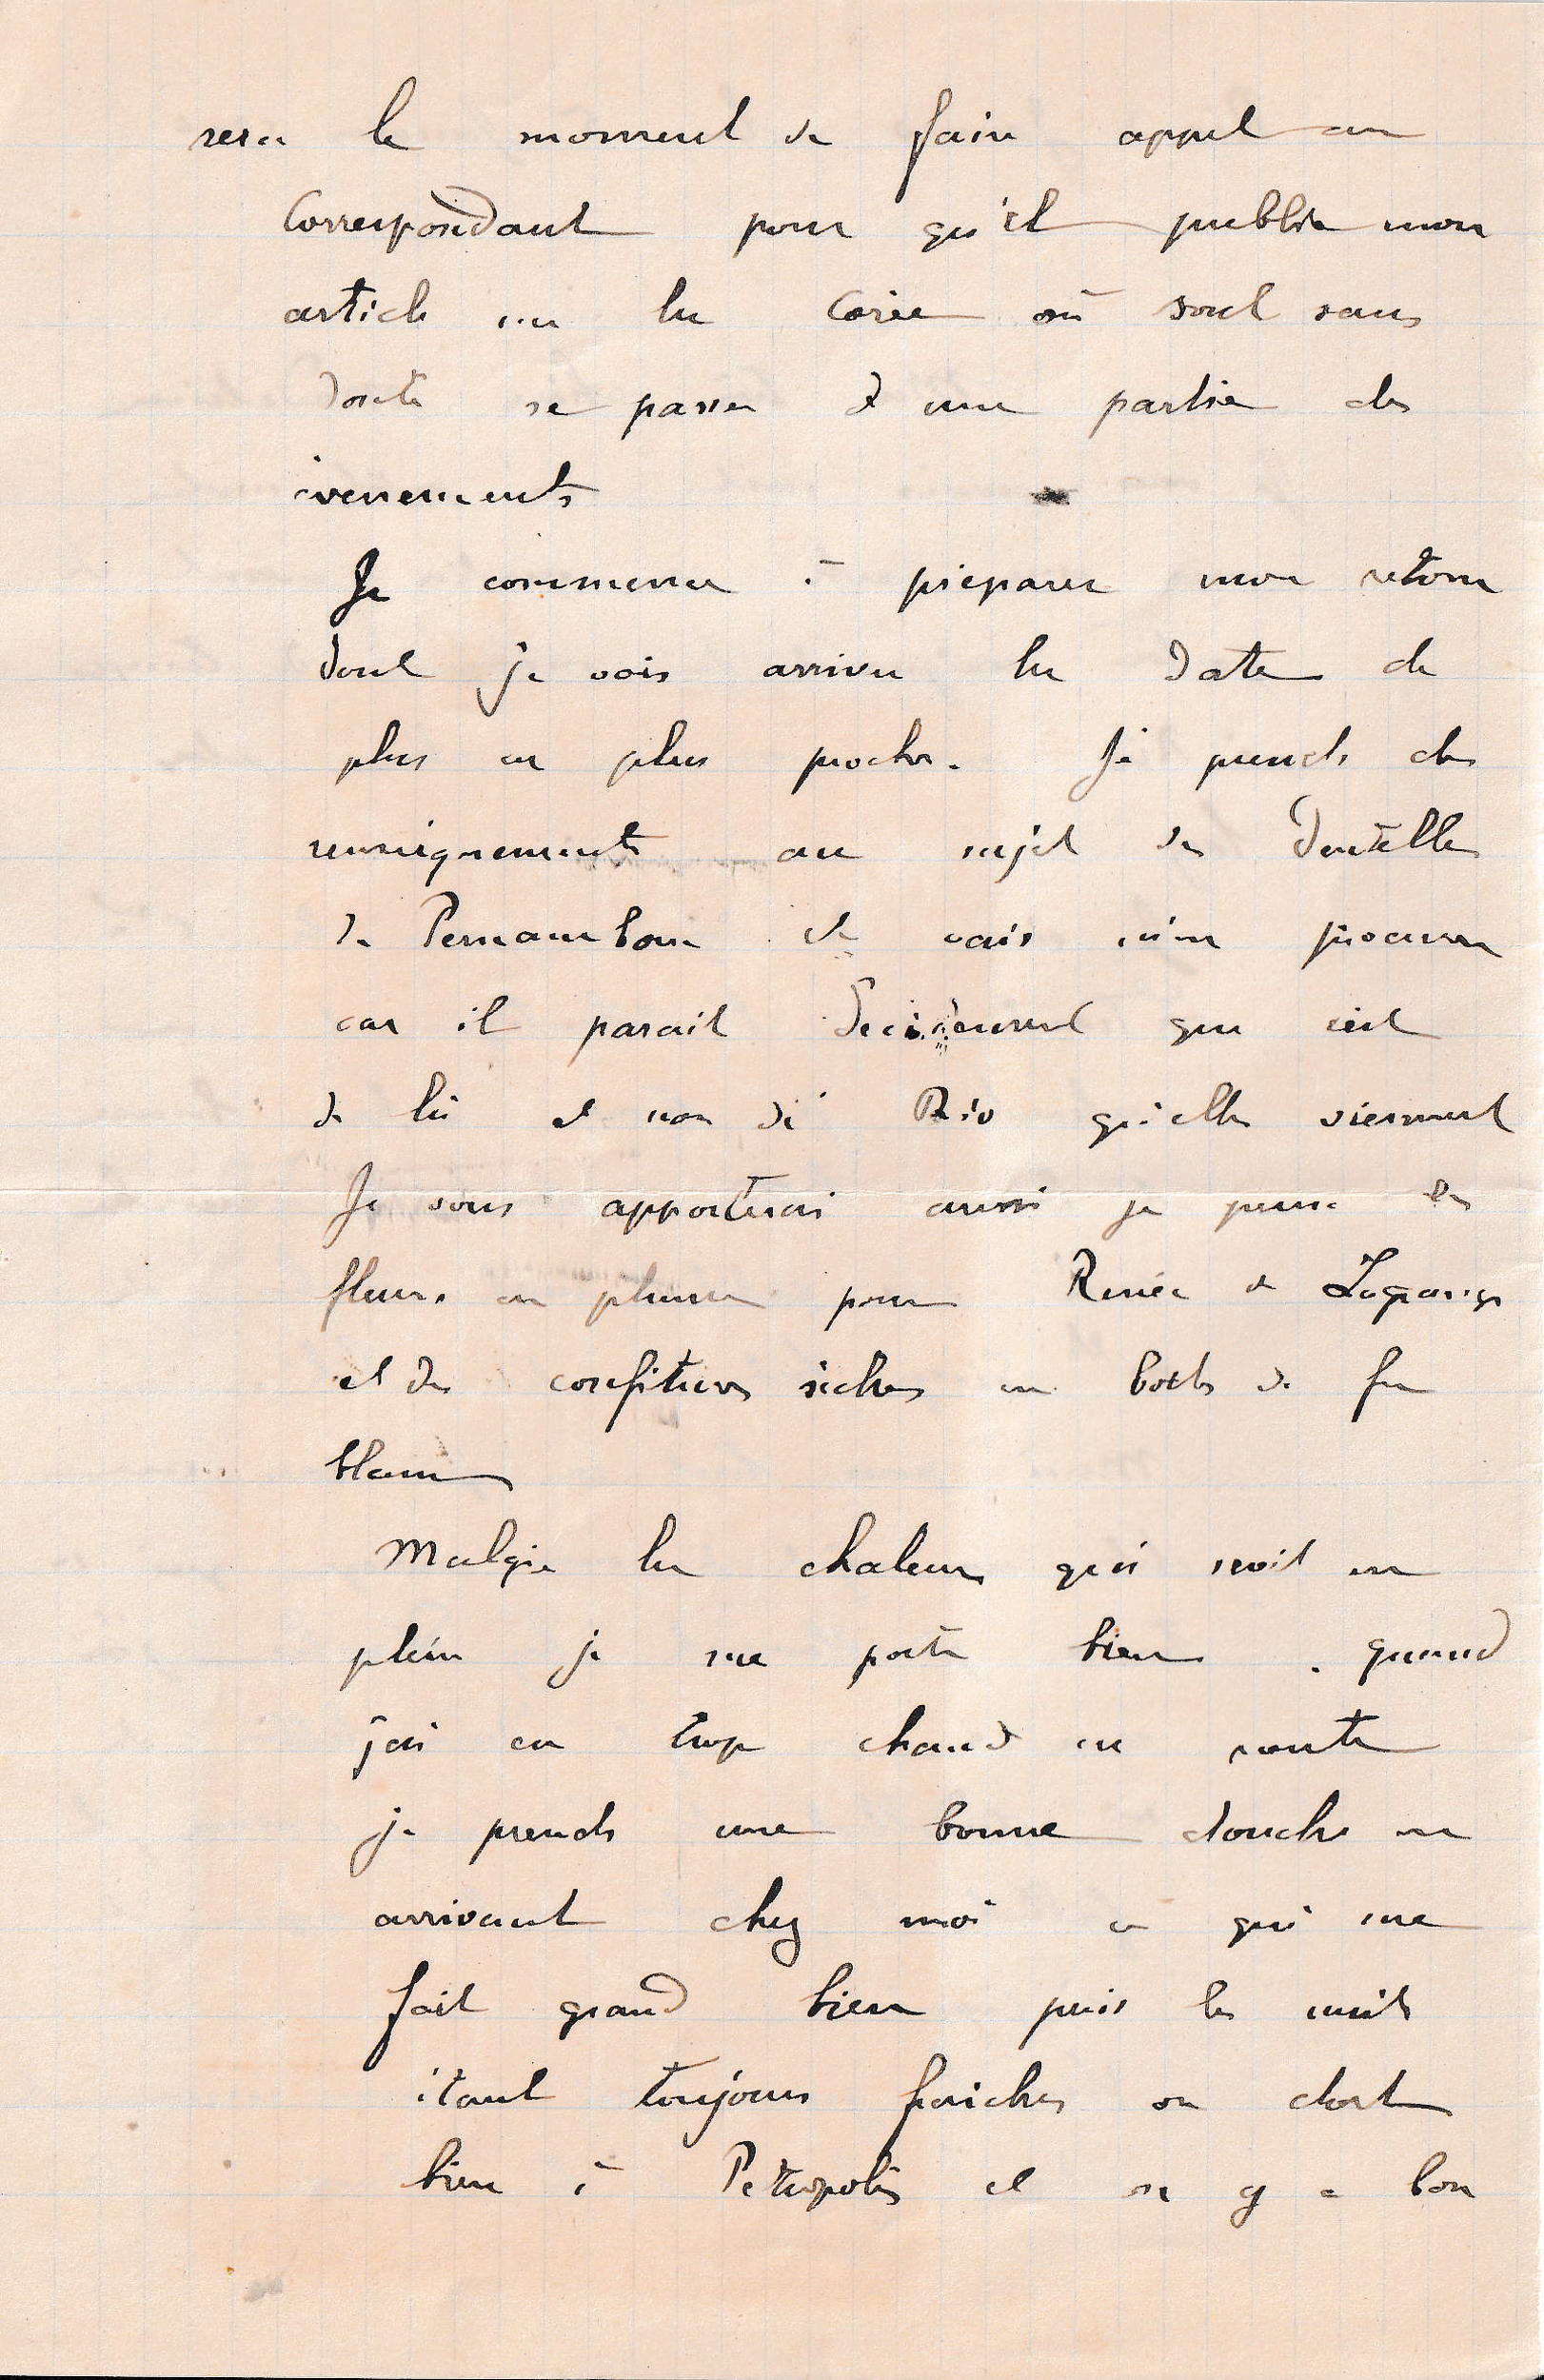 sera le moment de faire appel au
Correspondant pour qu'il publie mon
article sur la Corée où vont sans
doute se passer une partie des
évenements
Je commence à préparer mon retour
dont je vois arriver la date de
plus en plus proche. Je prends des
renseignements au sujet des dentelles
de Pernambouc et vais m'en procurer
car il parait décidement que c'est
de là et non de Rio qu'elles viennent
Je vous apporterai aussi je pense des
fleurs en plumes pour Renée de Lagrange
et des confitures sèches en boites de fer
blanc
Malgré la chaleur qui sévit en
plein je me porte bien. quand
j'ai eu trop chaud en route
je prends une bonne douche en
arrivant chez moi ce qui me
fait grand bien puis les nuits
étant toujours fraiches on dort
bien à Petropolis et on y a bon